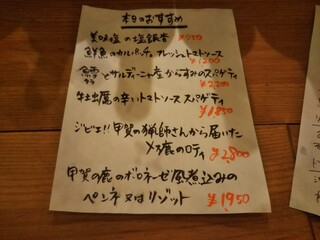 本日のおすすめ
美味塩の塩銀杏 ¥950
鮮魚のカルパッチョ フレッシュトマトソース
¥1200
とサルディーニャ産からすみのスパゲティ
¥2,200
牡蠣の辛いトマトソース スパゲティ
¥1,850
ジビエ!! 甲賀の猟師さんから届いた
メス鹿のロティ
¥2,800
甲賀の鹿のボロネーゼ風煮込みの
ペンネ 又は リゾット ¥1950